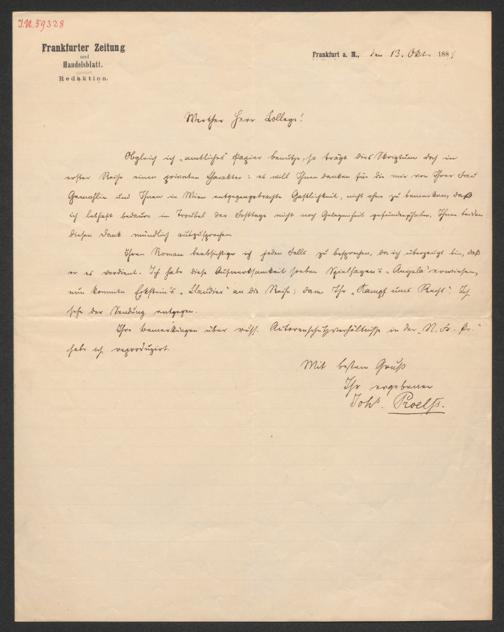 I.N. 59328
Frankfurter Zeitung
und
Handelsblatt.
Redaktion.
Frankfurt a. M., den 13. Okt. 188
Werther Herr College!
Obgleich ich „amtliches“ Papier benütze, so trägt dies Skriptum doch in
erster Reihe einen privaten Charakter: es will Ihnen danken für die mir von Ihrer Frau
Gemahlin und Ihnen in Wien entgegengebrachte Gastlichkeit, nicht ohne zu bemerken, daß
ich lebhaft bedaure im Trubel der Festtage nicht noch Gelegenheit gefunden zu haben, Ihnen beiden
diesen Dank mündlich auszusprechen.
Ihren Roman beabsichtige ich jeden Falls zu besprechen, da ich überzeugt bin, daß
er es verdient. Ich habe diese Aufmerksamkeit soeben Spielhagen's „Angela“ erwiesen,
nun kommt Eckstein's „Claudier“ an die Reihe; dann Ihr „Kampf ums Recht“. Ich
sehe der Sendung entgegen.
Ihre Bemerkungen über russ. Autorenschutzverhältnisse in der „N. Fr. Pr.“
habe ich reproduzirt.
Mit bestem Gruß
Ihr ergebener
Johs. Proelß.